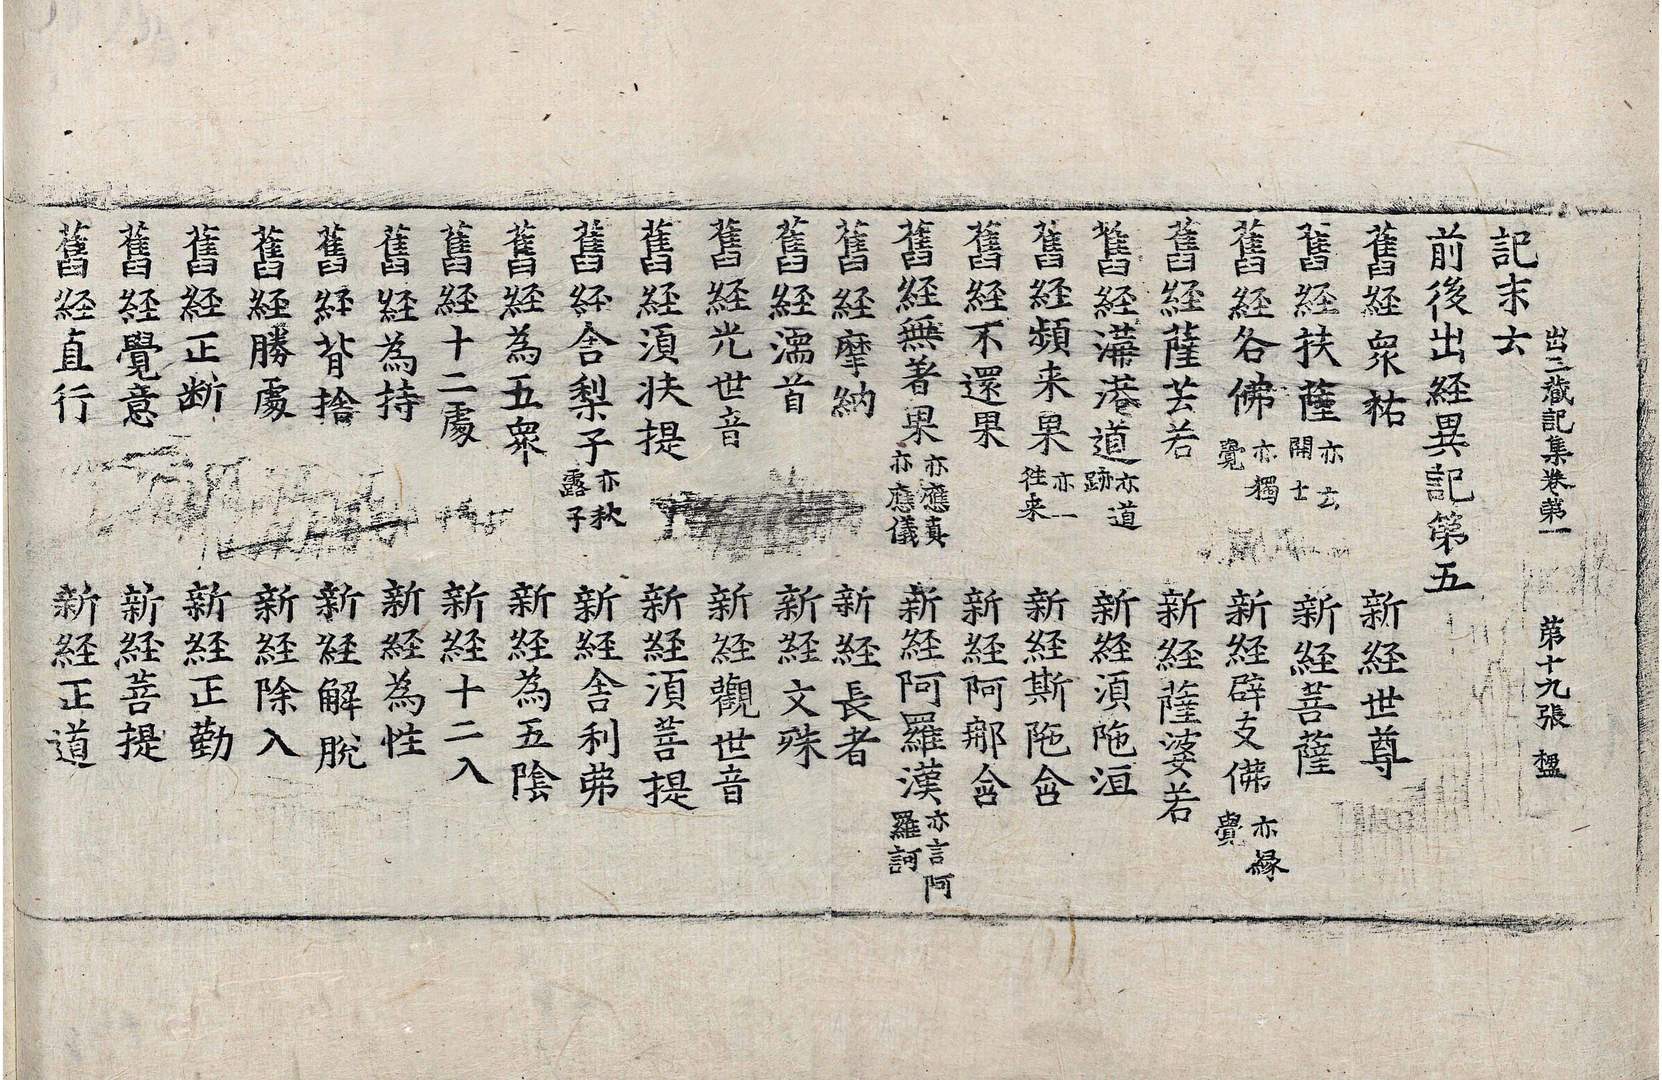 出三藏記集卷第一 第十九張 楹
記末云
前後出経異記第五
舊経衆祐 新経世尊
舊経扶薩亦云開士 新経菩薩
舊経各佛亦獨覺 新経辟支佛亦緣覺
舊経薩芸若 新経薩婆若
舊経溝港道亦道跡 新経須陁洹
舊経頻来果亦一往来 新経斯陁含
舊経不還果 新経阿那含
舊経無著果亦應真亦應儀 新経阿羅漢亦言阿羅訶
舊経摩納 新経長者
舊経濡首 新経文殊
舊経光世音 新経觀世音
舊経須扶提 新経須菩提
舊経舍梨子亦秋露子 新経舍利弗
舊経為五衆 新経為五陰
舊経十二處 新経十二入
舊経為持 新経為性
舊経背捨 新経解脫
舊経勝處 新経除入
舊経正断 新経正勤
舊経覺意 新経菩提
舊経直行 新経正道